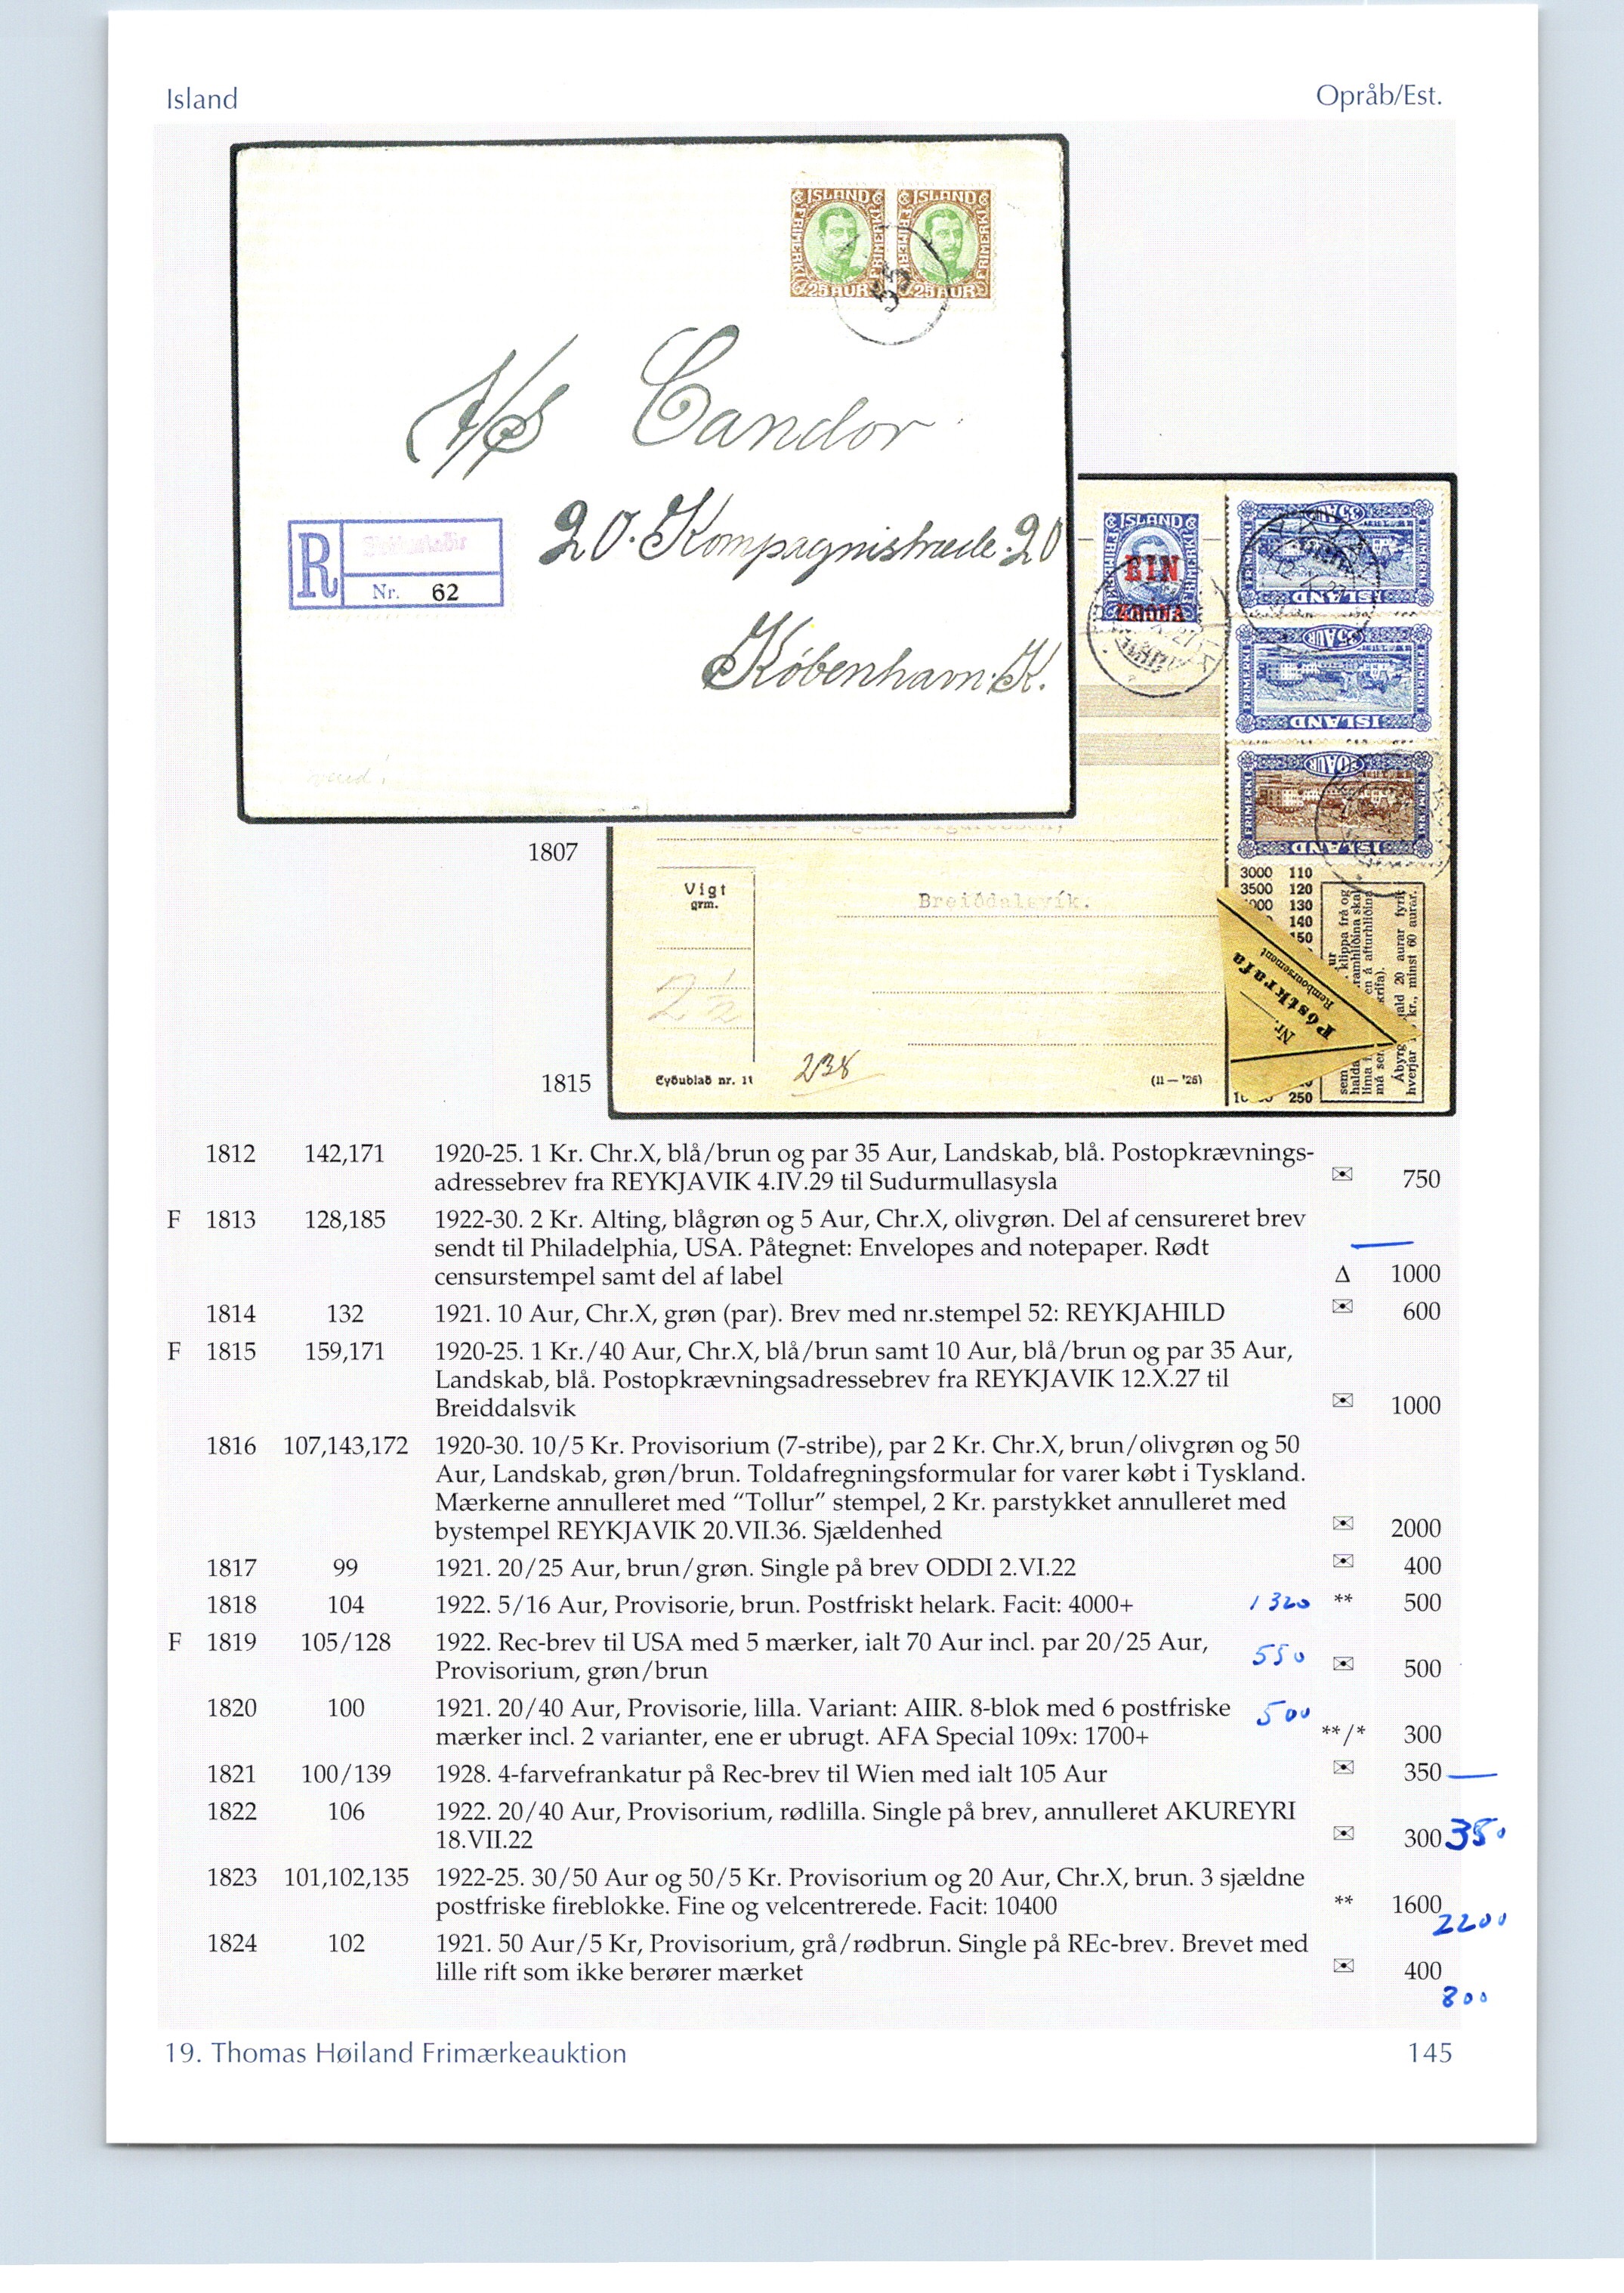 Island
Opråb/Est.
ISLAND ISLAND
FRIMERKI FRIMERKI
25 AUR 25 AUR
55
A/S Candor
20. Kompagnistræde. 20
København. K.
R
Nr. 62
ISLAND
EIN
KRÓNA
35 AUR
FRIMERKI FRIMERKI
ISLAND
35 AUR
FRIMERKI FRIMERKI
ISLAND
AUR
FRIMERKI FRIMERKI
ISLAND
1807
Vigt
grm.
2 1/2
Breiðdalsvík.
3000 110
3500 120
000 130
140
150
Nr.
Póstkrafa
Remboursement
klippa frá og
en á afturhliðina
ald 20 aurar fyrir
kr., minst 60 aurar.
250
238
1815
Eyðublað nr. 11
(11 — '26)
1812 142,171 1920-25. 1 Kr. Chr.X, blå/brun og par 35 Aur, Landskab, blå. Postopkrævnings-
adressebrev fra REYKJAVIK 4.IV.29 til Sudurmullasysla ✉ 750
F 1813 128,185 1922-30. 2 Kr. Alting, blågrøn og 5 Aur, Chr.X, olivgrøn. Del af censureret brev
sendt til Philadelphia, USA. Påtegnet: Envelopes and notepaper. Rødt
censurstempel samt del af label Δ 1000
1814 132 1921. 10 Aur, Chr.X, grøn (par). Brev med nr.stempel 52: REYKJAHILD ✉ 600
F 1815 159,171 1920-25. 1 Kr./40 Aur, Chr.X, blå/brun samt 10 Aur, blå/brun og par 35 Aur,
Landskab, blå. Postopkrævningsadressebrev fra REYKJAVIK 12.X.27 til
Breiddalsvik ✉ 1000
1816 107,143,172 1920-30. 10/5 Kr. Provisorium (7-stribe), par 2 Kr. Chr.X, brun/olivgrøn og 50
Aur, Landskab, grøn/brun. Toldafregningsformular for varer købt i Tyskland.
Mærkerne annulleret med “Tollur” stempel, 2 Kr. parstykket annulleret med
bystempel REYKJAVIK 20.VII.36. Sjældenhed ✉ 2000
1817 99 1921. 20/25 Aur, brun/grøn. Single på brev ODDI 2.VI.22 ✉ 400
1818 104 1922. 5/16 Aur, Provisorie, brun. Postfriskt helark. Facit: 4000+ 1320 ** 500
F 1819 105/128 1922. Rec-brev til USA med 5 mærker, ialt 70 Aur incl. par 20/25 Aur,
Provisorium, grøn/brun 550 ✉ 500
1820 100 1921. 20/40 Aur, Provisorie, lilla. Variant: AIIR. 8-blok med 6 postfriske
mærker incl. 2 varianter, ene er ubrugt. AFA Special 109x: 1700+ 500 **/* 300
1821 100/139 1928. 4-farvefrankatur på Rec-brev til Wien med ialt 105 Aur ✉ 350
1822 106 1922. 20/40 Aur, Provisorium, rødlilla. Single på brev, annulleret AKUREYRI
18.VII.22 ✉ 300 350
1823 101,102,135 1922-25. 30/50 Aur og 50/5 Kr. Provisorium og 20 Aur, Chr.X, brun. 3 sjældne
postfriske fireblokke. Fine og velcentrerede. Facit: 10400 ** 1600
2200
1824 102 1921. 50 Aur/5 Kr, Provisorium, grå/rødbrun. Single på REc-brev. Brevet med
lille rift som ikke berører mærket ✉ 400
800
19. Thomas Høiland Frimærkeauktion
145